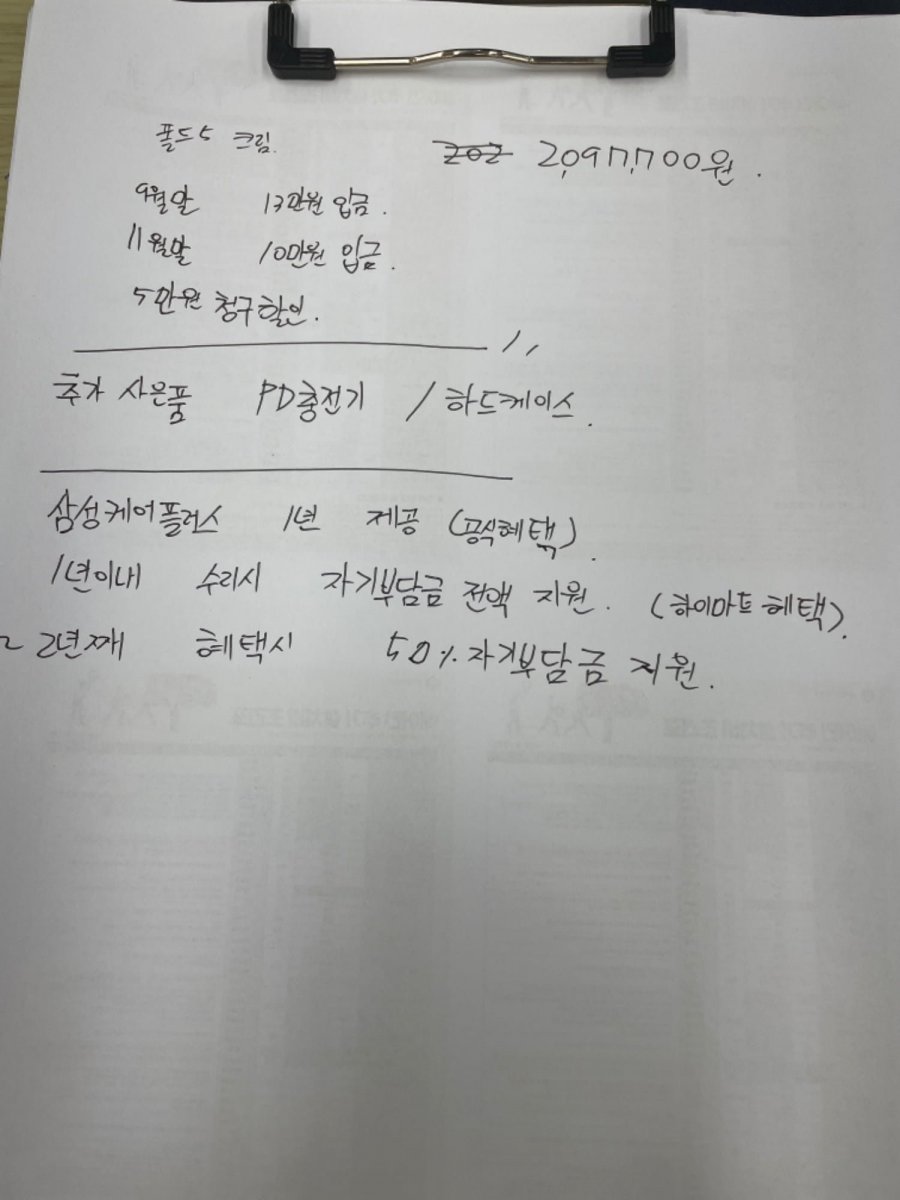 폴드5 크림. 2,097,700원.
9월말 13만원 입금.
11월말 10만원 입금.
5만원 청구할인.
추가 사은품 PD충전기 / 하드케이스.
삼성케어플러스 1년 제공 (공식혜택).
1년이내 수리시 자기부담금 전액 지원. (하이마트 혜택).
~ 2년째 혜택시 50% 자기부담금 지원.